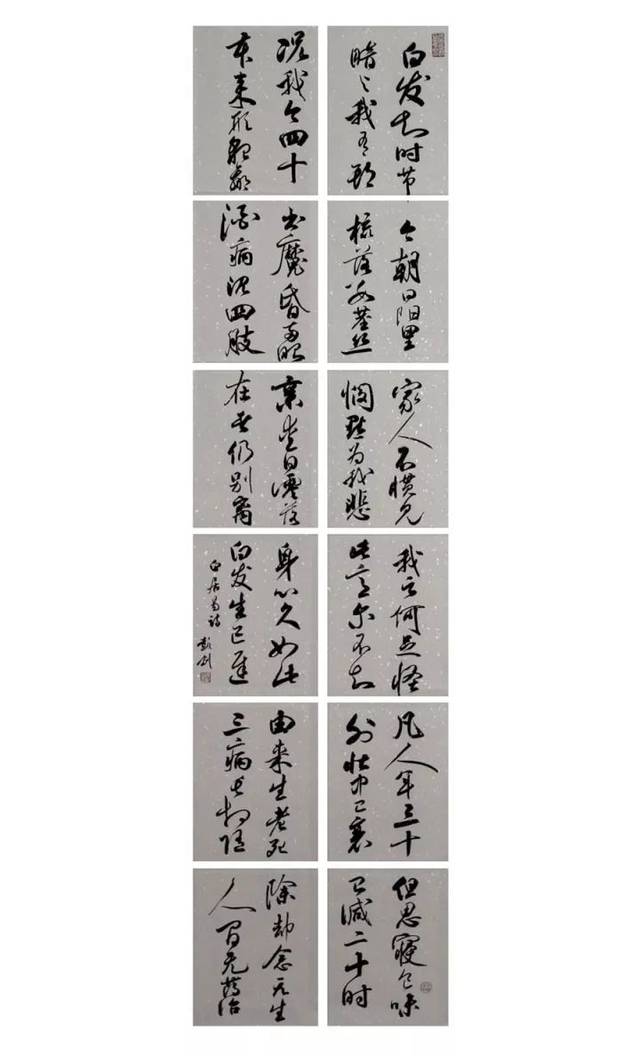 白发知时节
暗与我有期
今朝日阳里
梳落数茎丝
家人不惯见
悯默为我悲
我云何足怪
此意尔不知
凡人年三十
外壮中已衰
但思寝食味
已减二十时
况我今四十
本来形貌羸
书魔昏两眼
酒病沉四肢
亲爱日零落
在者仍别离
身心久如此
白发生已迟
白居易诗
由来生老死
三病长相随
除却念无生
人间无药治